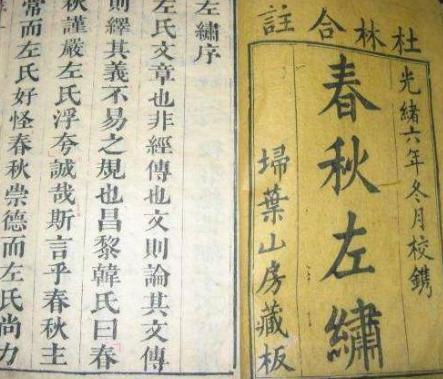 杜林合註
光緒六年冬月校鐫
春秋左繡
埽葉山房藏板
左繡序
左氏文章也非經傳也文則論其文傳
則繹其義不易之規也昌黎韓氏曰春
秋謹嚴左氏浮夸誠哉斯言乎春秋主
常而左氏好怪春秋崇德而左氏尚力